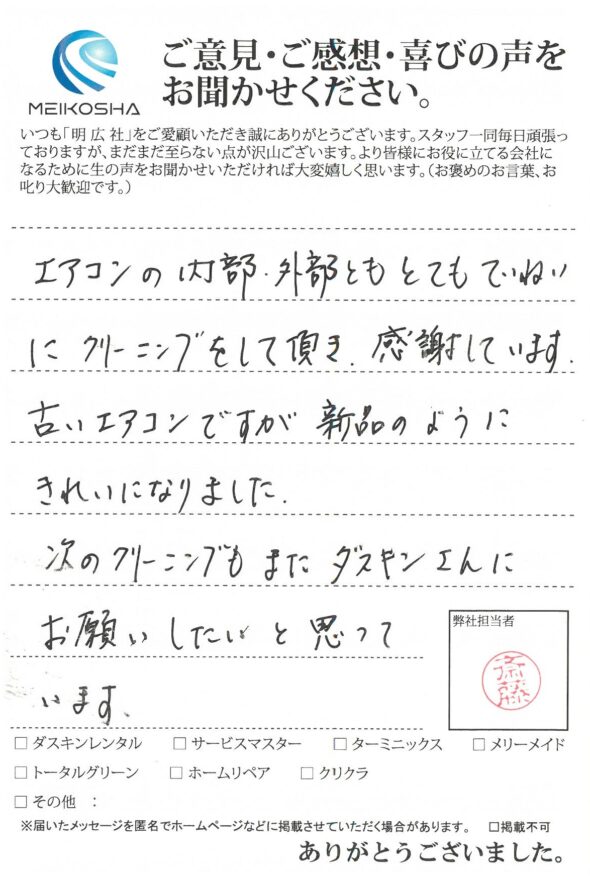 MEIKOSHA
ご意見・ご感想・喜びの声を
お聞かせください。
いつも「明広社」をご愛顧いただき誠にありがとうございます。スタッフ一同毎日頑張っ
ておりますが、まだまだ至らない点が沢山ございます。より皆様にお役に立てる会社に
なるために生の声をお聞かせいただければ大変嬉しく思います。（お褒めのお言葉、お
叱り大歓迎です。）
エアコンの内部・外部ともとてもていねい
にクリーニングをして頂き、感謝しています。
古いエアコンですが新品のように
きれいになりました。
次のクリーニングもまたダスキンさんに
お願いしたいと思って
います。
弊社担当者
斎藤
□ ダスキンレンタル □ サービスマスター □ ターミニックス □ メリーメイド
□ トータルグリーン □ ホームリペア □ クリクラ
□ その他 ：
※届いたメッセージを匿名でホームページなどに掲載させていただく場合があります。 □掲載不可
ありがとうございました。